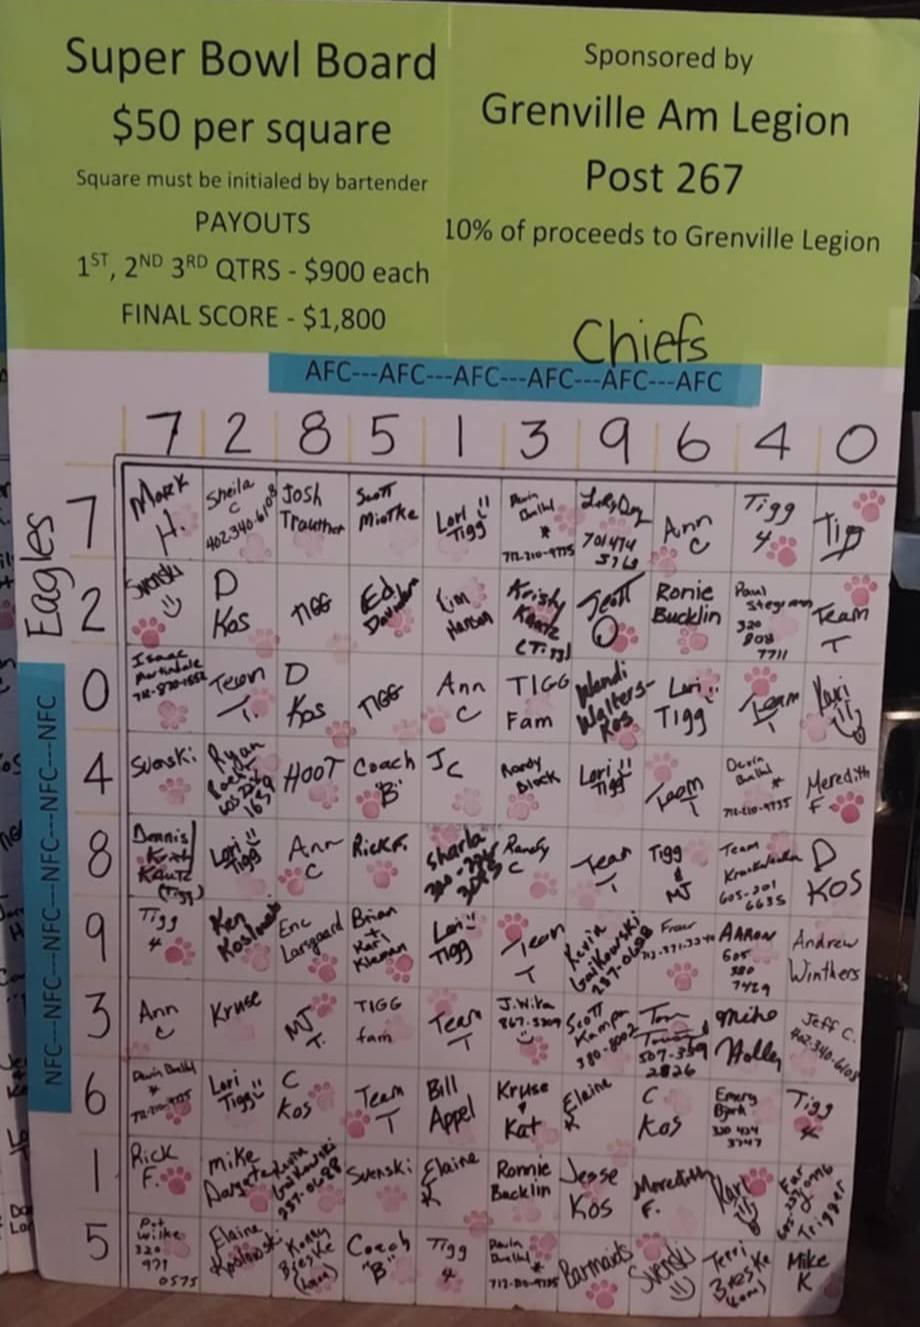 Super Bowl Board
$50 per square
Square must be initialed by bartender
PAYOUTS
1ST, 2ND 3RD QTRS - $900 each
FINAL SCORE - $1,800
Sponsored by
Grenville Am Legion
Post 267
10% of proceeds to Grenville Legion
Chiefs
AFC---AFC---AFC---AFC---AFC---AFC
7 2 8 5 1 3 9 6 4 0
Eagles
NFC---NFC---NFC---NFC---NFC---NFC
7 Mark H. Sheila C 402-340-6108 Josh Trauther Scott Miotke Lori Tigg 712-210-9775 701 474 Ann C Tigg 4 Tigg
2 Svenski D Kos TIGG Ed Tim Hanson Kristy Kautz (Tigg) Scott O Ronie Bucklin Paul 320 808 7711 Team T
0 Isaac Team T. D Kos TIGG Ann C TIGG Fam Wendi Walters-Kos Lori Tigg Team T Kari
4 Svenski Ryan HOOT Coach "B" JC Randy Block Lori Tigg Team T Devin Meredith F
8 Dennis Kristy Kautz (Tigg) Lori Tigg Ann C Rick F. Sharla Randy C Team T Tigg & MJ Team 605-201 6635 D KOS
9 Tigg 4 Ken Eric Brian + Kari Lori Tigg Team T Kevin Gaikowski 237-0688 AARON 605 380 7429 Andrew Winthers
3 Ann C Kruse MJ T. TIGG fam Team T J. Wika 867-5309 Scott Kampa 380-8002 Tom 507-359 2826 Mike Holley Jeff C. 402-340-6108
6 Lori Tigg C Kos Team T Bill Appel Kruse Kat Elaine K C Kos Emery 320 Tigg 4
1 Rick F. Mike Kevin Gaikowski 237-0688 Svenski Elaine K Ronnie Backlin Jesse Kos Meredith F. Kari Trigger
5 Pat Wilke 320 971 0575 Elaine Koslowski Kenny Coach "B" Tigg 4 Barmaids Svenski Terri Mike K